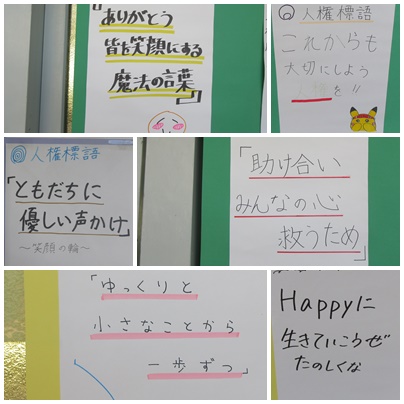 「ありがとう
皆を笑顔にする
魔法の言葉」
人権標語
これからも
大切にしよう
人権を!!
人権標語
「ともだちに
優しい声かけ」
～笑顔の輪～
「助け合い
みんなの心
救うため」
「ゆっくりと
小さなことから
一歩ずつ」
Happyに
生きていこうぜ
たのしくな